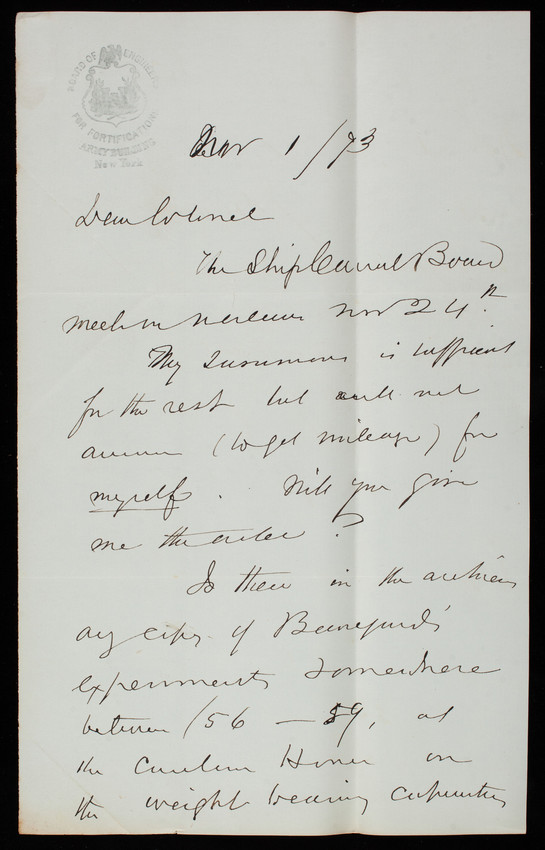 BOARD OF ENGINEERS
FOR FORTIFICATIONS
ARMY BUILDING
New York
Nov 1/73
Dear Colonel
The Ship Canal Board
meets in New Orleans Nov 24th.
My summons is sufficient
for the rest but will not
answer (to get mileage) for
myself. Will you give
me the order?
Is there in the archives
any copy of Beauregard's
experiments somewhere
between /56 — 59, at
the Custom House on
the weight bearing capacities